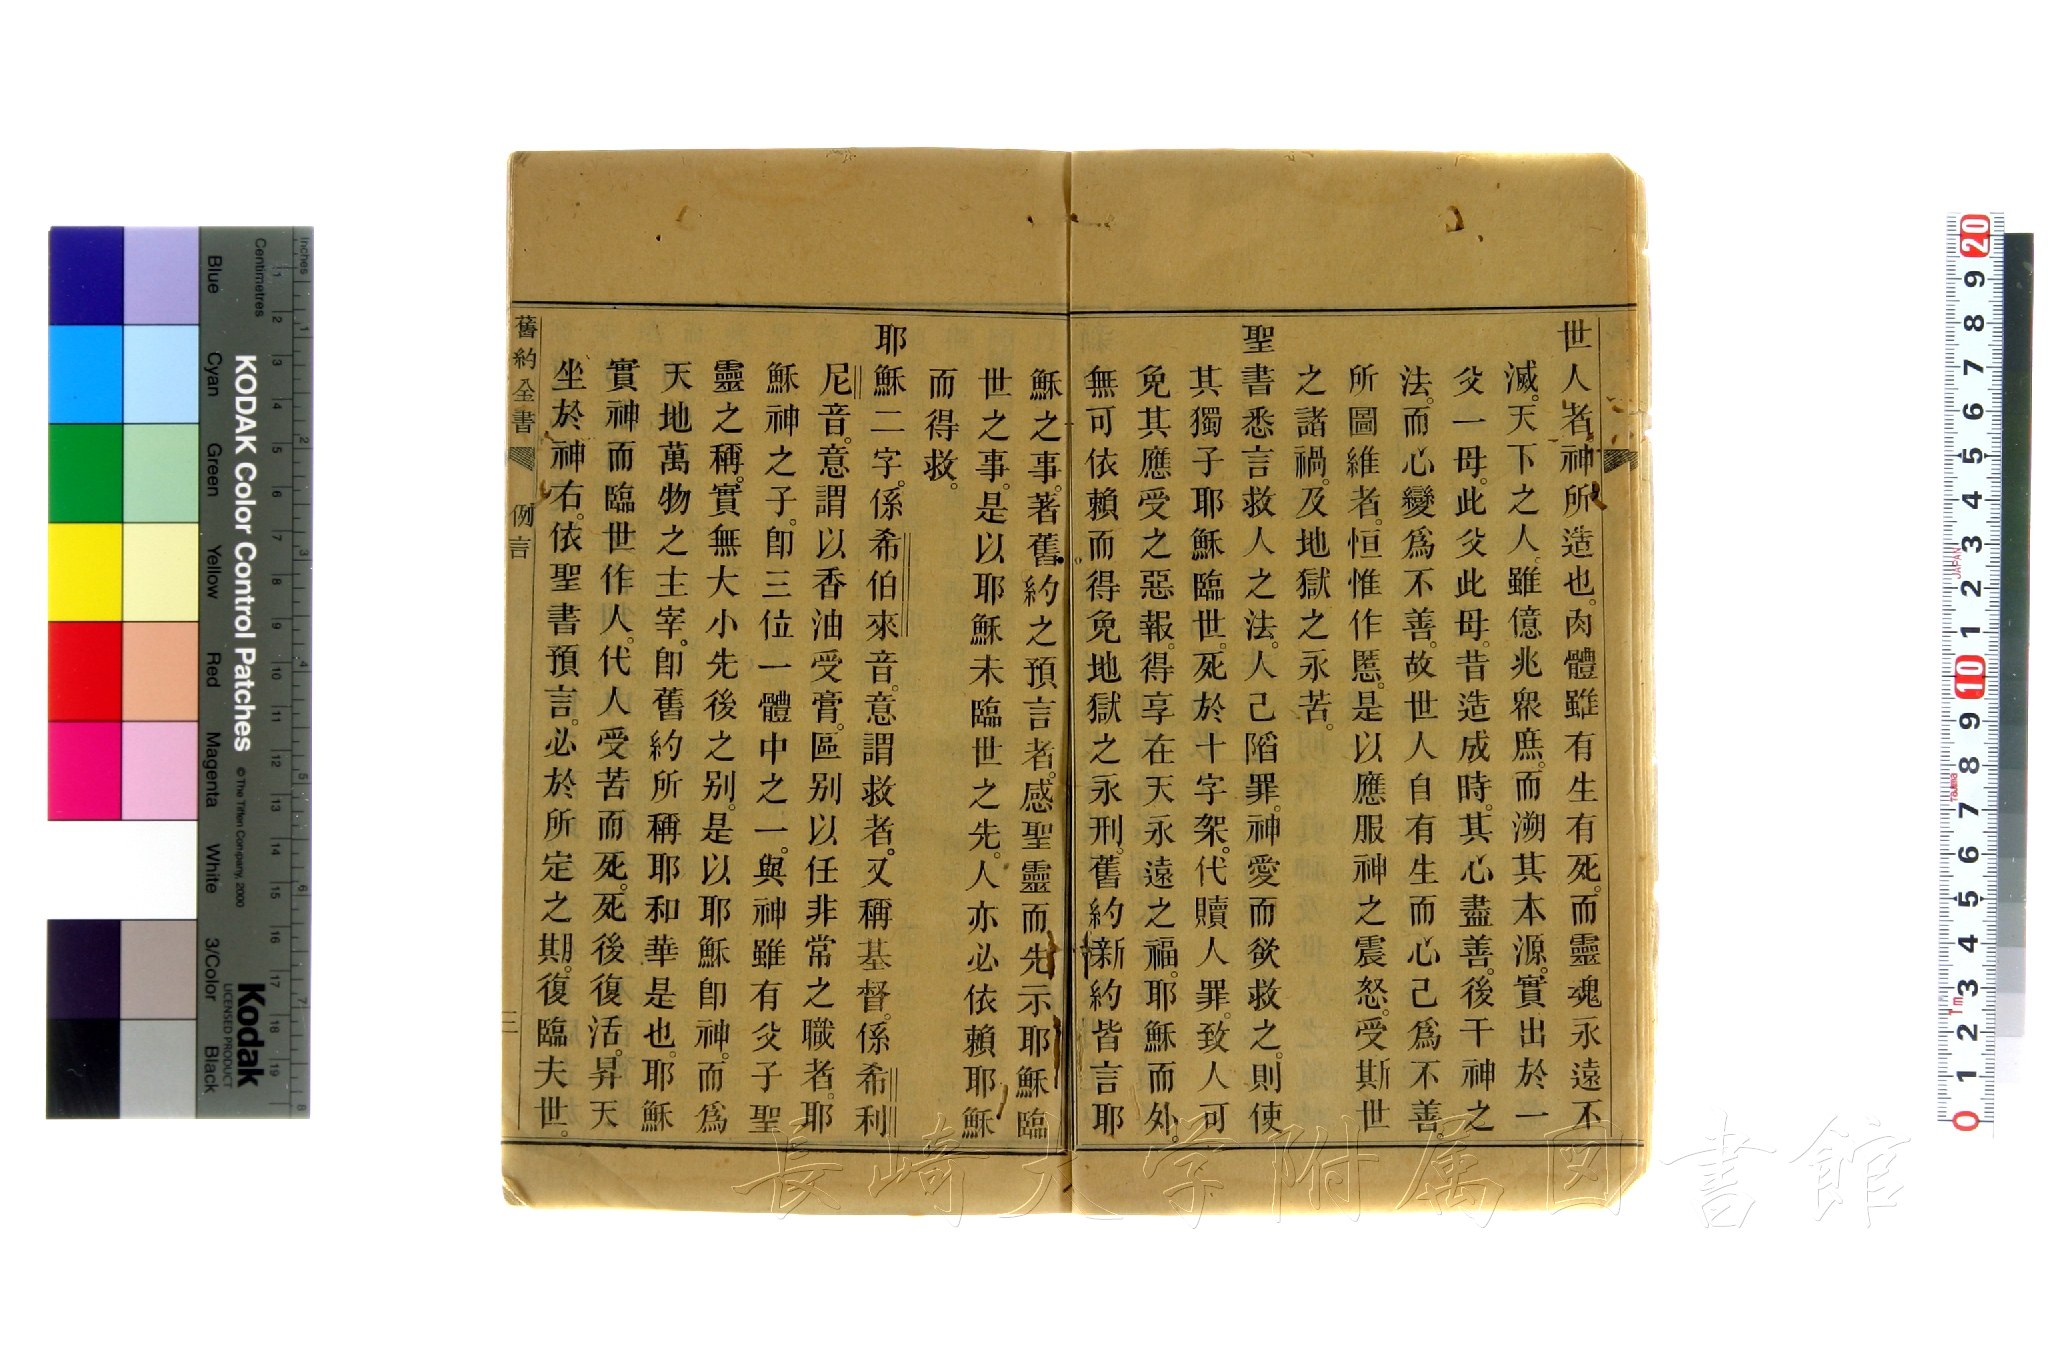 世人者神所造也。肉體雖有生有死。而靈魂永遠不
滅。天下之人。雖億兆衆庶。而溯其本源。實出於一
父一母。此父此母。昔造成時。其心盡善。後干神之
法。而心變爲不善。故世人自有生而心己爲不善。
所圖維者。恒惟作慝。是以應服神之震怒。受斯世
之諸禍。及地獄之永苦。
聖書悉言救人之法。人己陷罪。神愛而欲救之。則使
其獨子耶穌臨世。死於十字架。代贖人罪。致人可
免其應受之惡報。得享在天永遠之福。耶穌而外。
無可依賴而得免地獄之永刑。舊約新約皆言耶
穌之事。著舊約之預言者。感聖靈而先示耶穌臨
世之事。是以耶穌未臨世之先。人亦必依賴耶穌
而得救。
耶穌二字。係希伯來音。意謂救者。又稱基督。係希利
尼音。意謂以香油受膏。區别以任非常之職者。耶
穌神之子。卽三位一體中之一。與神雖有父子聖
靈之稱。實無大小先後之别。是以耶穌卽神。而爲
天地萬物之主宰。卽舊約所稱耶和華是也。耶穌
實神而臨世作人。代人受苦而死。死後復活。昇天
坐於神右。依聖書預言。必於所定之期。復臨夫世。
舊約全書 例言
三
Inches
Centimetres
KODAK Color Control Patches
© The Tiffen Company, 2000
Kodak
LICENSED PRODUCT
Blue
Cyan
Green
Yellow
Red
Magenta
White
3/Color
Black
長崎大学附属図書館